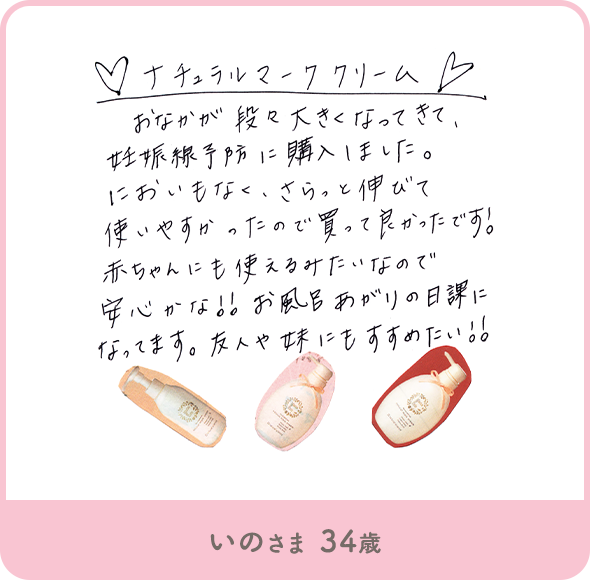 ♡ ナチュラルマーククリーム ♡
おなかが段々大きくなってきて、
妊娠線予防に購入しました。
においもなく、さらっと伸びて
使いやすかったので買って良かったです!
赤ちゃんにも使えるみたいなので
安心かな!! お風呂あがりの日課に
なってます。友人や妹にもすすめたい!!
いのさま 34歳